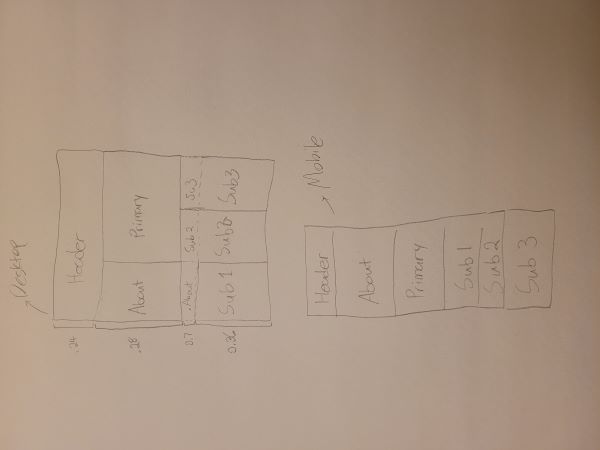 Desktop
.24
Header
.28
About
Primary
0.7
.About
Sub2
Su3
0.36
Sub1
Sub2
Sub3
Header
Mobile
About
Primary
Sub1
Sub2
Sub 3